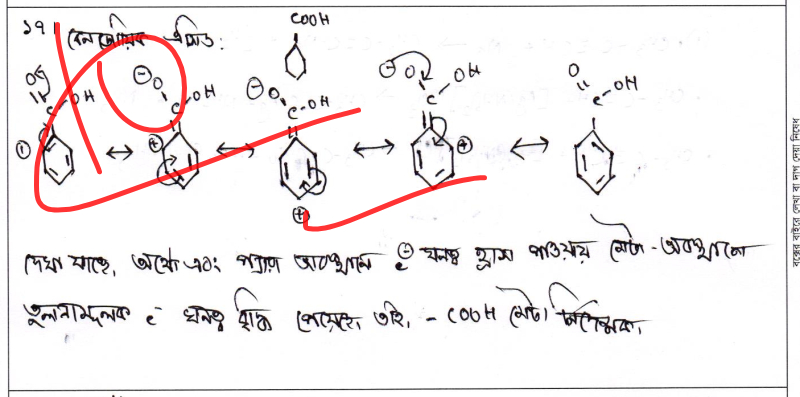 ১৭। বেনজোয়িক এসিড:
COOH
O C OH
⊖ O C OH
⊖ O C OH
⊖ O C OH
O C OH
⊕ ⊕ ⊕
দেখা যাচ্ছে, অর্থো এবং প্যারা অবস্থানে e⊖ ঘনত্ব হ্রাস পাওয়ায় মেটা-অবস্থানে
তুলনামূলক e⁻ ঘনত্ব বৃদ্ধি পেয়েছে, তাই, - COOH মেটা নির্দেশক।
বক্সের বাইরে লেখা বা দাগ দেয়া নিষেধ